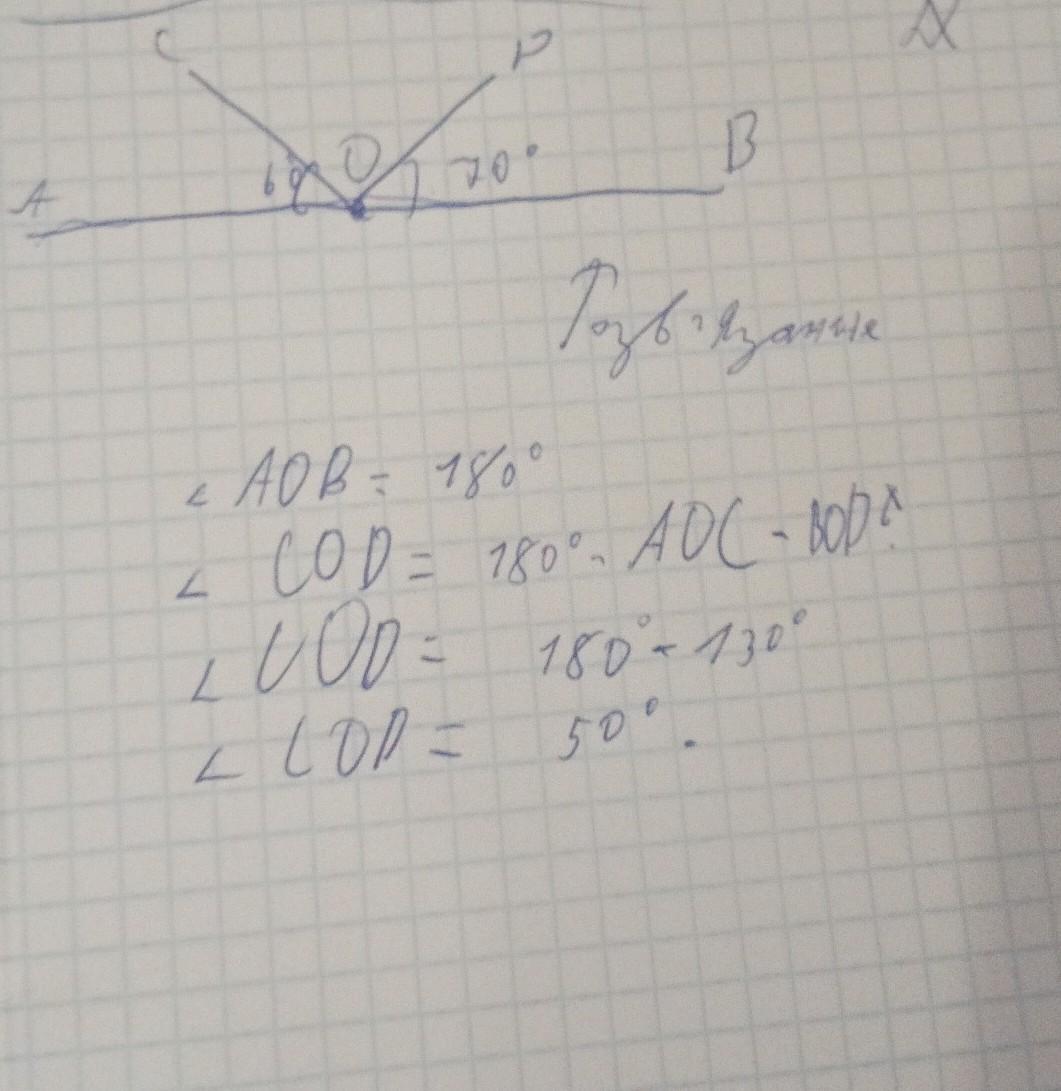 C D
A 60 O 70° B
Розв'язання
∠ AOB = 180°
∠ COD = 180° - AOC - BOD
∠ COD = 180° - 130°
∠ COD = 50°.